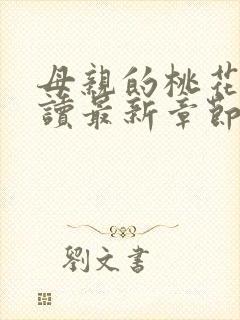 母親的桃花
讀最新章節
劉文書